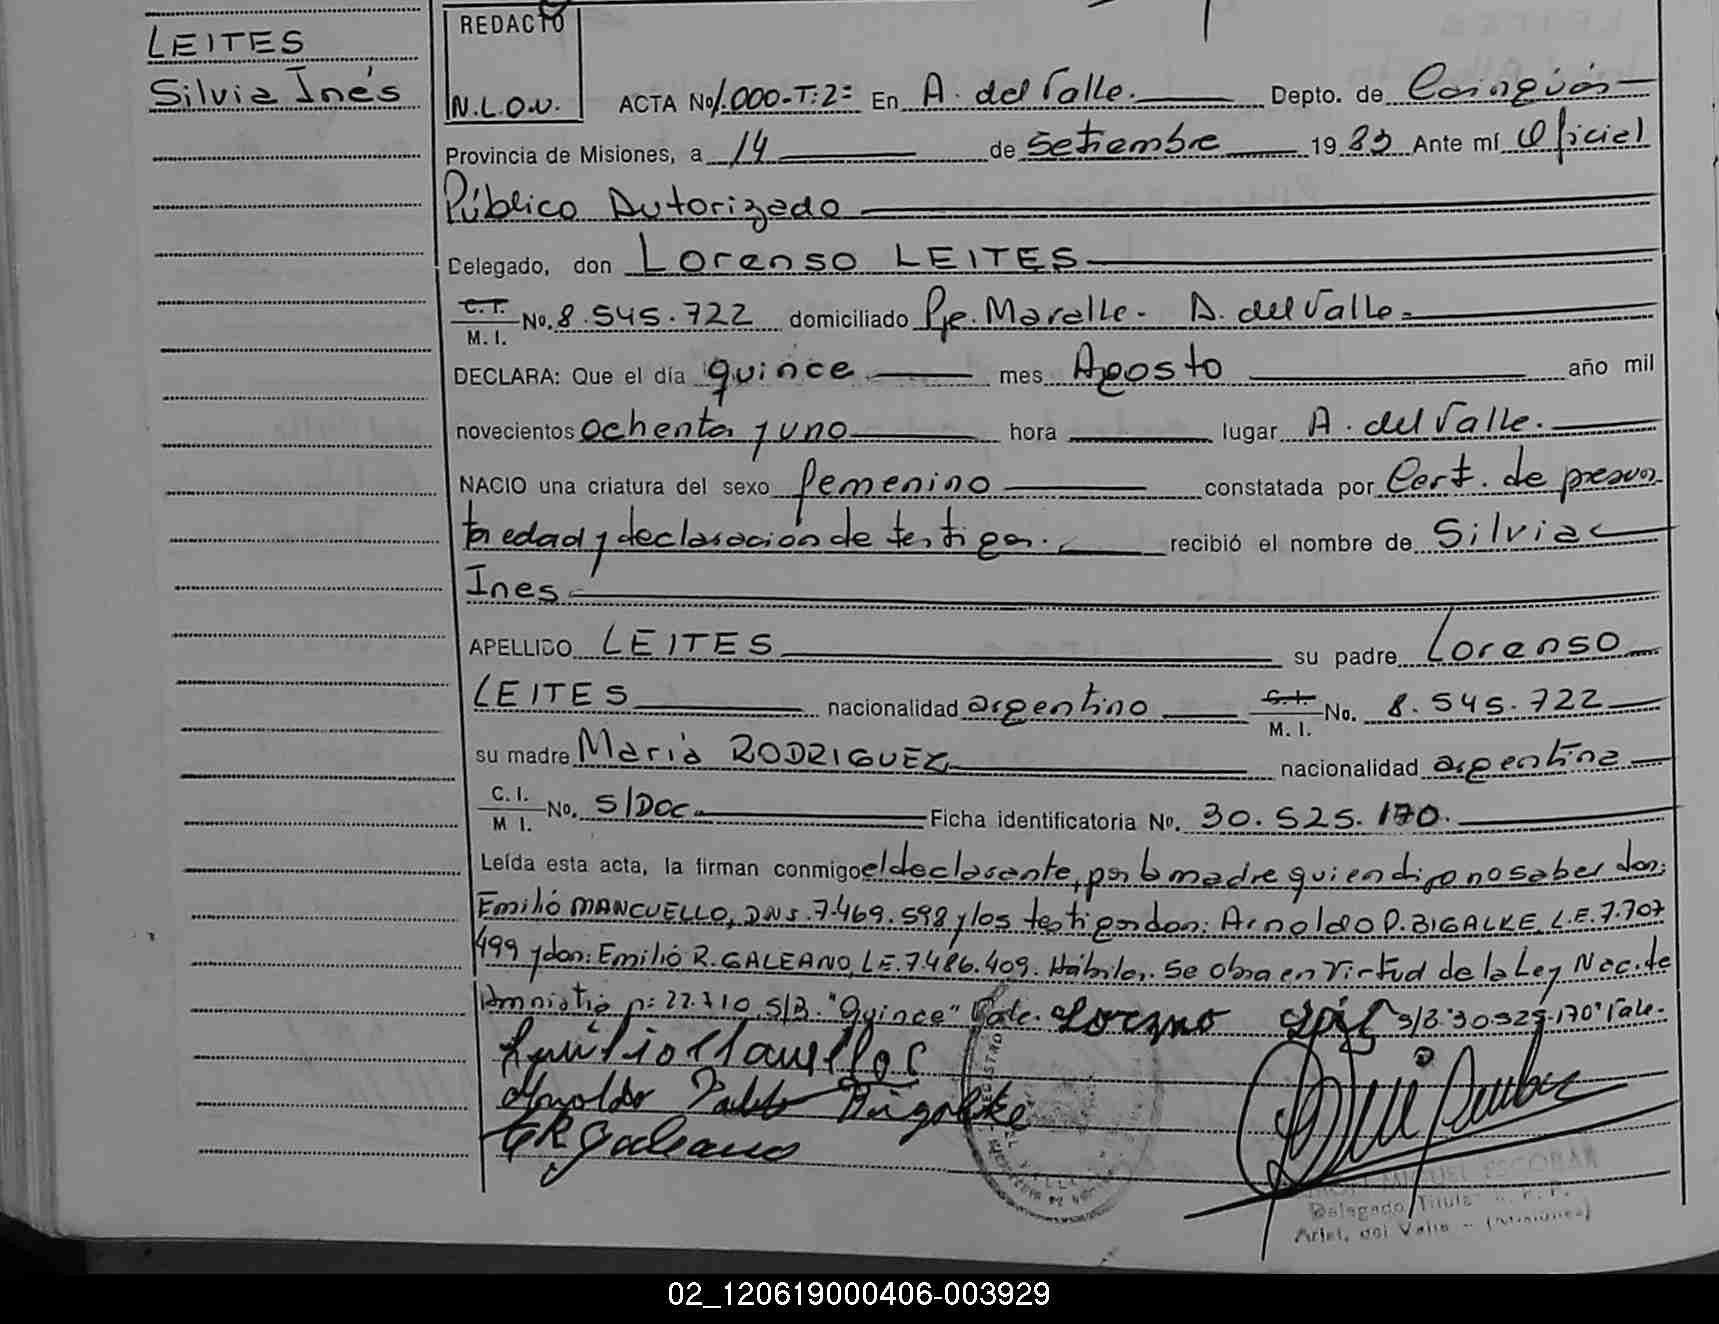 LEITES
Silvia Inés
REDACTO
N.L.O.V.
ACTA No 1.000-T:2= En A. del Valle. Depto. de Cainguás
Provincia de Misiones, a 14 de Setiembre 1983 Ante mí Oficial
Público Autorizado
Delegado, don Lorenso LEITES
C.I. M. I. No. 8.545.722 domiciliado Pje. Maralle. A. del Valle.
DECLARA: Que el día quince mes Agosto año mil
novecientos ochenta y uno hora lugar A. del Valle.
NACIO una criatura del sexo femenino constatada por Cert. de presun
ta edad y declaración de testigos. recibió el nombre de Silvia
Ines
APELLIDO LEITES su padre Lorenso
LEITES nacionalidad argentino C.I. M. I. No. 8.545.722
su madre María RODRIGUEZ nacionalidad argentina
C. I. M I. No. S/Doc. Ficha identificatoria No. 30.525.170.
Leída esta acta, la firman conmigo el declarante, por la madre quien dijo no saber don:
Emilió MANCUELLO, DNI. 7.469.598 y los testigos don: Arnoldo P. BIGALKE, L.E. 7.707
499 y don: Emilió R. GALEANO, L.E. 7.486.409. Hábiles. Se obra en virtud de la Ley Nac. de
Amnistía n: 22.710. S/B. "Quince" Vale. Lorenso S/B "30.525.170" Vale.
Arnoldo Pablo Bigalke
E R Galeano
REGISTRO
MIGUEL ESCOBAR
Delegado Titular
Arist. del Valle - (Misiones)
02_120619000406-003929